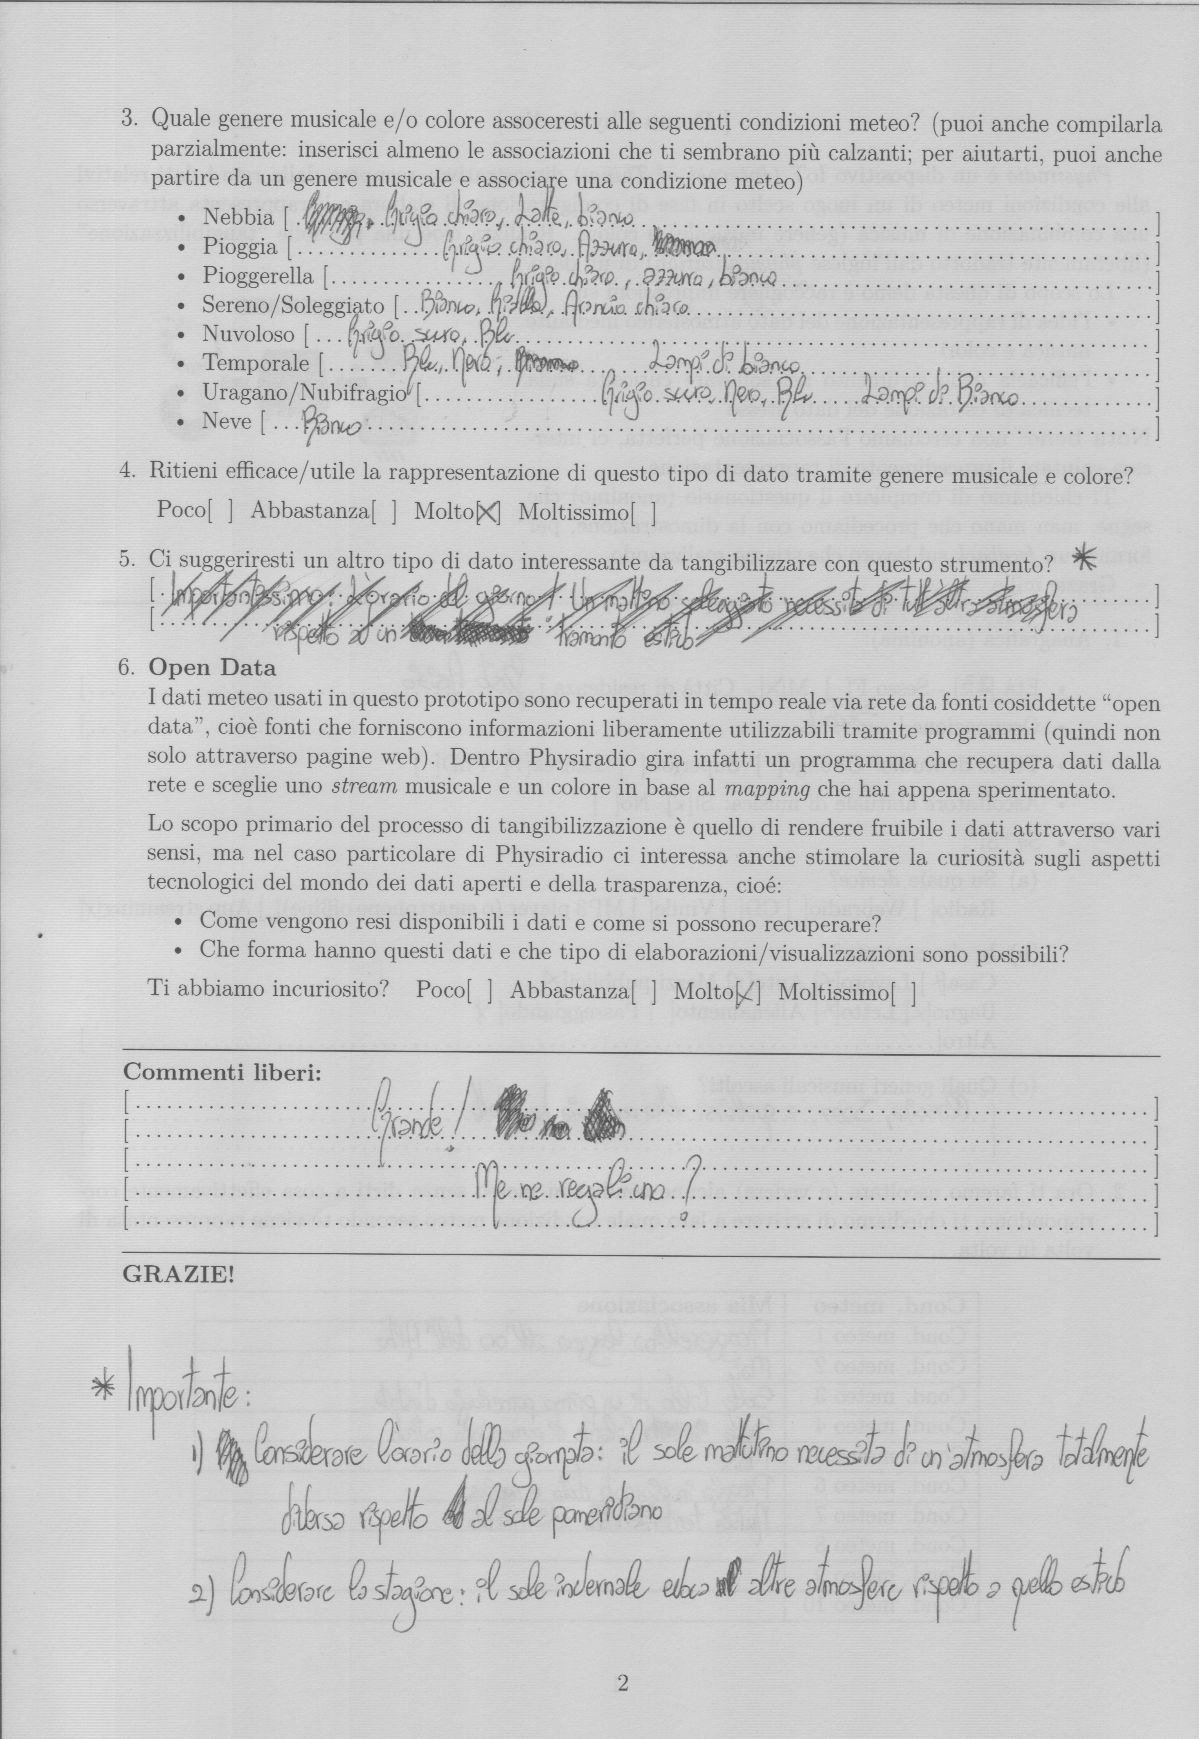 3. Quale genere musicale e/o colore assoceresti alle seguenti condizioni meteo? (puoi anche compilarla
parzialmente: inserisci almeno le associazioni che ti sembrano più calzanti; per aiutarti, puoi anche
partire da un genere musicale e associare una condizione meteo)
• Nebbia [ Grigio chiaro, Latte, bianco ]
• Pioggia [ Grigio chiaro, Azzurro, ]
• Pioggerella [ Grigio chiaro, azzurro, bianco ]
• Sereno/Soleggiato [ Bianco, Giallo, Arancio chiaro ]
• Nuvoloso [ Grigio scuro, Blu ]
• Temporale [ Blu, Nero, Lampi di bianco ]
• Uragano/Nubifragio [ Grigio scuro, Nero, Blu Lampi di Bianco ]
• Neve [ Bianco ]
4. Ritieni efficace/utile la rappresentazione di questo tipo di dato tramite genere musicale e colore?
Poco[ ] Abbastanza[ ] Molto[X] Moltissimo[ ]
5. Ci suggeriresti un altro tipo di dato interessante da tangibilizzare con questo strumento? *
[ Importantissimo: L'orario del giorno! Un mattino soleggiato necessita di tutt'altra atmosfera ]
[ rispetto ad un tramonto estivo ]
6. Open Data
I dati meteo usati in questo prototipo sono recuperati in tempo reale via rete da fonti cosiddette “open
data”, cioè fonti che forniscono informazioni liberamente utilizzabili tramite programmi (quindi non
solo attraverso pagine web). Dentro Physiradio gira infatti un programma che recupera dati dalla
rete e sceglie uno stream musicale e un colore in base al mapping che hai appena sperimentato.
Lo scopo primario del processo di tangibilizzazione è quello di rendere fruibile i dati attraverso vari
sensi, ma nel caso particolare di Physiradio ci interessa anche stimolare la curiosità sugli aspetti
tecnologici del mondo dei dati aperti e della trasparenza, cioé:
• Come vengono resi disponibili i dati e come si possono recuperare?
• Che forma hanno questi dati e che tipo di elaborazioni/visualizzazioni sono possibili?
Ti abbiamo incuriosito? Poco[ ] Abbastanza[ ] Molto[X] Moltissimo[ ]
Commenti liberi:
Grande!
Me ne regali una?
GRAZIE!
* Importante:
1) Considerare l'orario della giornata: il sole mattutino necessita di un'atmosfera totalmente
diversa rispetto al sole pomeridiano
2) Considerare la stagione: il sole invernale evoca altre atmosfere rispetto a quello estivo
2